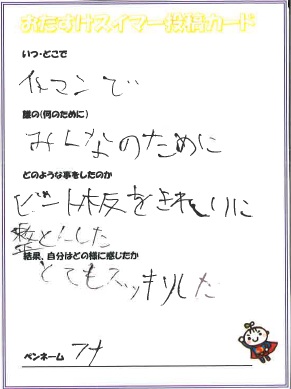 おたすけスイマー投稿カード
いつ・どこで
イマンで
誰の(何のために)
みんなのために
どのような事をしたのか
ビート板をきれいに
整とんした
結果、自分はどの様に感じたか
とてもスッキリした
ペンネーム フナ